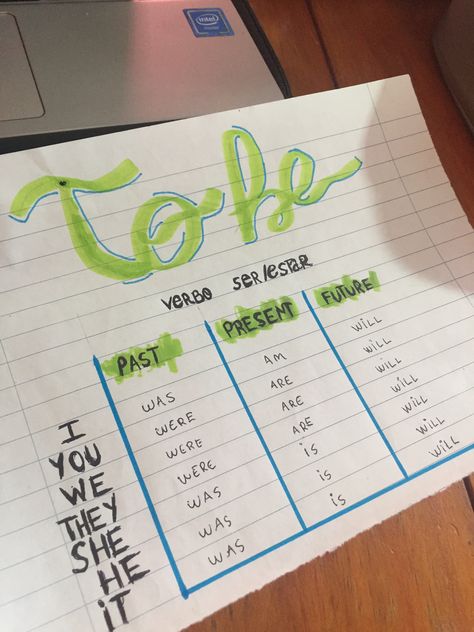 intel
To be
VERBO SER/ESTAR
PAST PRESENT FUTURE
I WAS AM WILL
YOU WERE ARE WILL
WE WERE ARE WILL
THEY WERE ARE WILL
SHE WAS iS WILL
HE WAS iS WILL
iT WAS iS WILL